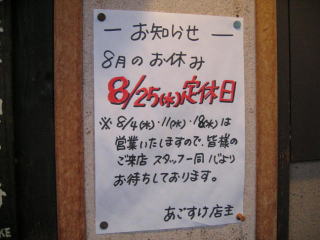 お知らせ
8月のお休み
8/25(水)定休日
※ 8/4(水)・11(水)・18(水)は
営業いたしますので、皆様の
ご来店 スタッフ一同 心より
お待ちしております。
あごすけ店主
KE